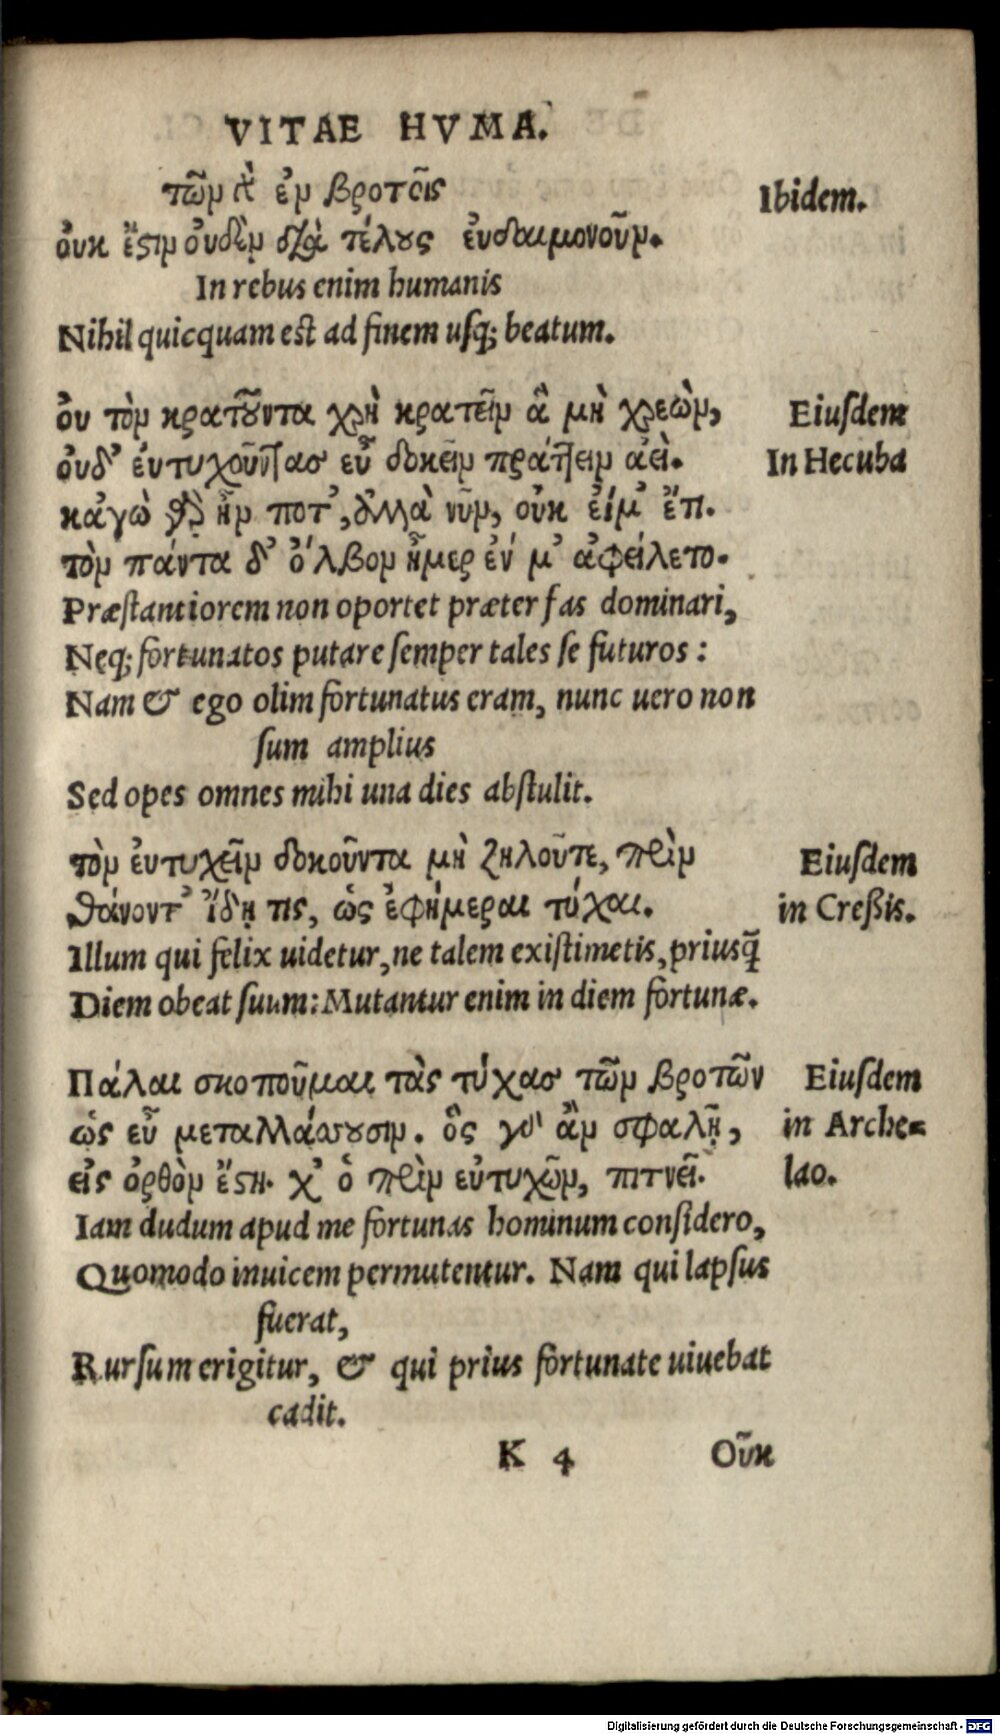 VITAE HVMA.
τῶν δ' ἐν βροτοῖς
Ibidem.
ὀυκ ἔστιν ὀυδὲν διὰ τέλους ἐυδαιμονοῦν.
In rebus enim humanis
Nihil quicquam est ad finem usq; beatum.
ὀυ τὸν κρατοῦντα χρὴ κρατεῖν ἃ μὴ χρεὼν,
Eiusdem
ὀυδ' ἐυτυχοῦντας εὖ δοκεῖν πράττειν ἀεὶ.
In Hecuba
κἀγὼ γὰρ ἦν ποτ', ἀλλὰ νῦν, οὐκ εἰμ' ἔτι.
τὸν πάντα δ' ὄλβον ἦμερ ἑν μ' ἀφείλετο.
Præstantiorem non oportet præter fas dominari,
Neq; fortunatos putare semper tales se futuros:
Nam & ego olim fortunatus eram, nunc uero non
sum amplius
Sed opes omnes mihi una dies abstulit.
τὸν ἐυτυχεῖν δοκοῦντα μὴ ζηλοῦτε, πρὶν
Eiusdem
θάνοντ' ἴδῃ τις, ὡς ἐφήμεραι τύχαι.
in Cressis.
Illum qui felix uidetur, ne talem existimetis, priusq̃
Diem obeat suum: Mutantur enim in diem fortunæ.
Πάλαι σκοποῦμαι τὰς τύχας τῶν βροτῶν
Eiusdem
ὡς εὖ μεταλλάσουσιν. ὃς γὰρ ἂν σφαλῇ,
in Arche=
εἰς ὀρθὸν ἔστη. χ' ὁ πρὶν εὐτυχῶν, πιτνεῖ.
lao.
Iam dudum apud me fortunas hominum considero,
Quomodo inuicem permutentur. Nam qui lapsus
fuerat,
Rursum erigitur, & qui prius fortunate uiuebat
cadit.
K 4
Οὖκ
Digitalisierung gefördert durch die Deutsche Forschungsgemeinschaft - DFG